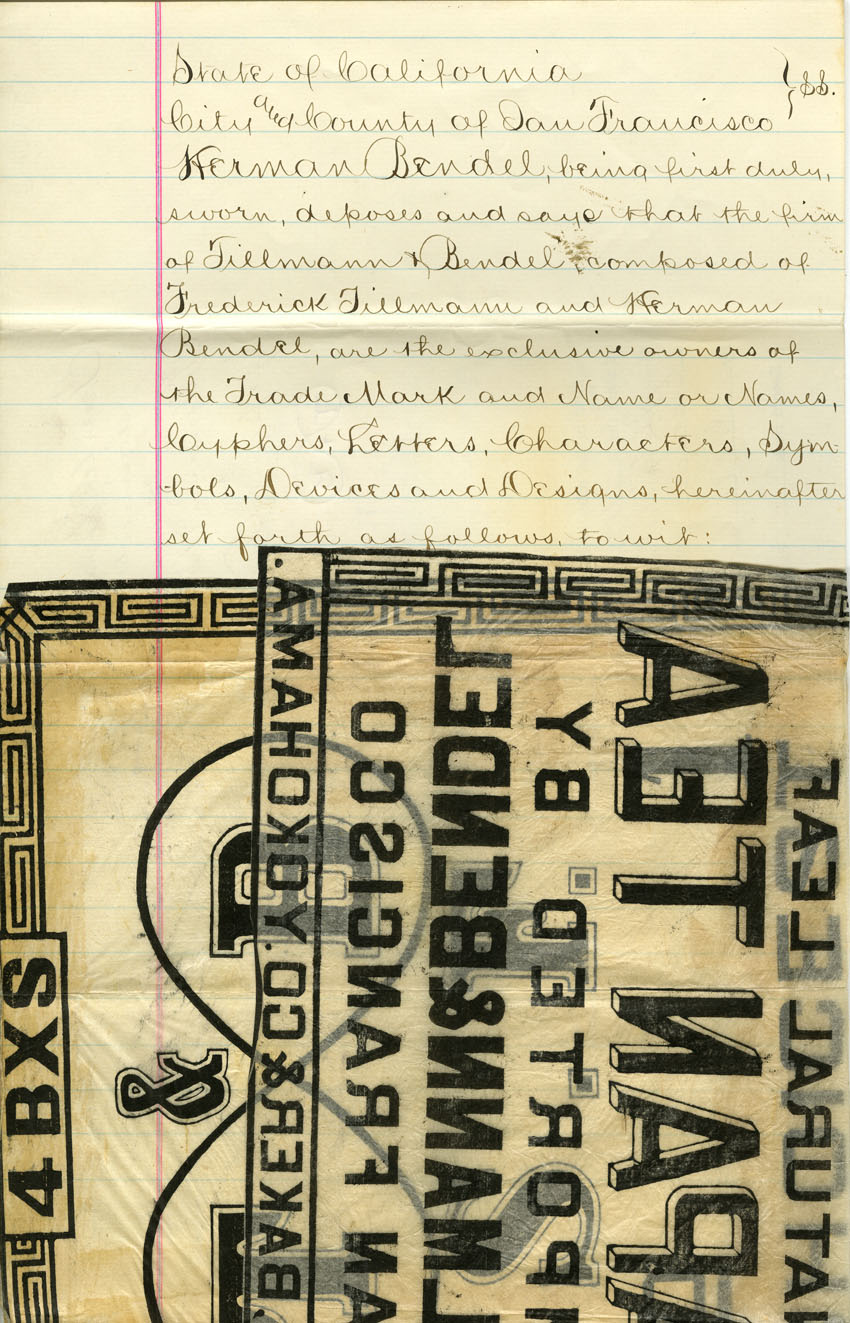 State of California } SS.
City and County of San Francisco
Herman Bendel, being first duly,
sworn, deposes and says that the firm
of Tillmann & Bendel, composed of
Frederick Tillmann and Herman
Bendel, are the exclusive owners of
the Trade Mark and Name or Names,
Cyphers, Letters, Characters, Sym-
bols, Devices and Designs, hereinafter
set forth as follows, to wit:
4 BXS
&
B
BAKER & CO. YOKOHAMA.
AN FRANCISCO
LMANN & BENDEL
PORTED BY
PAN TEA
ATURAL LEAF